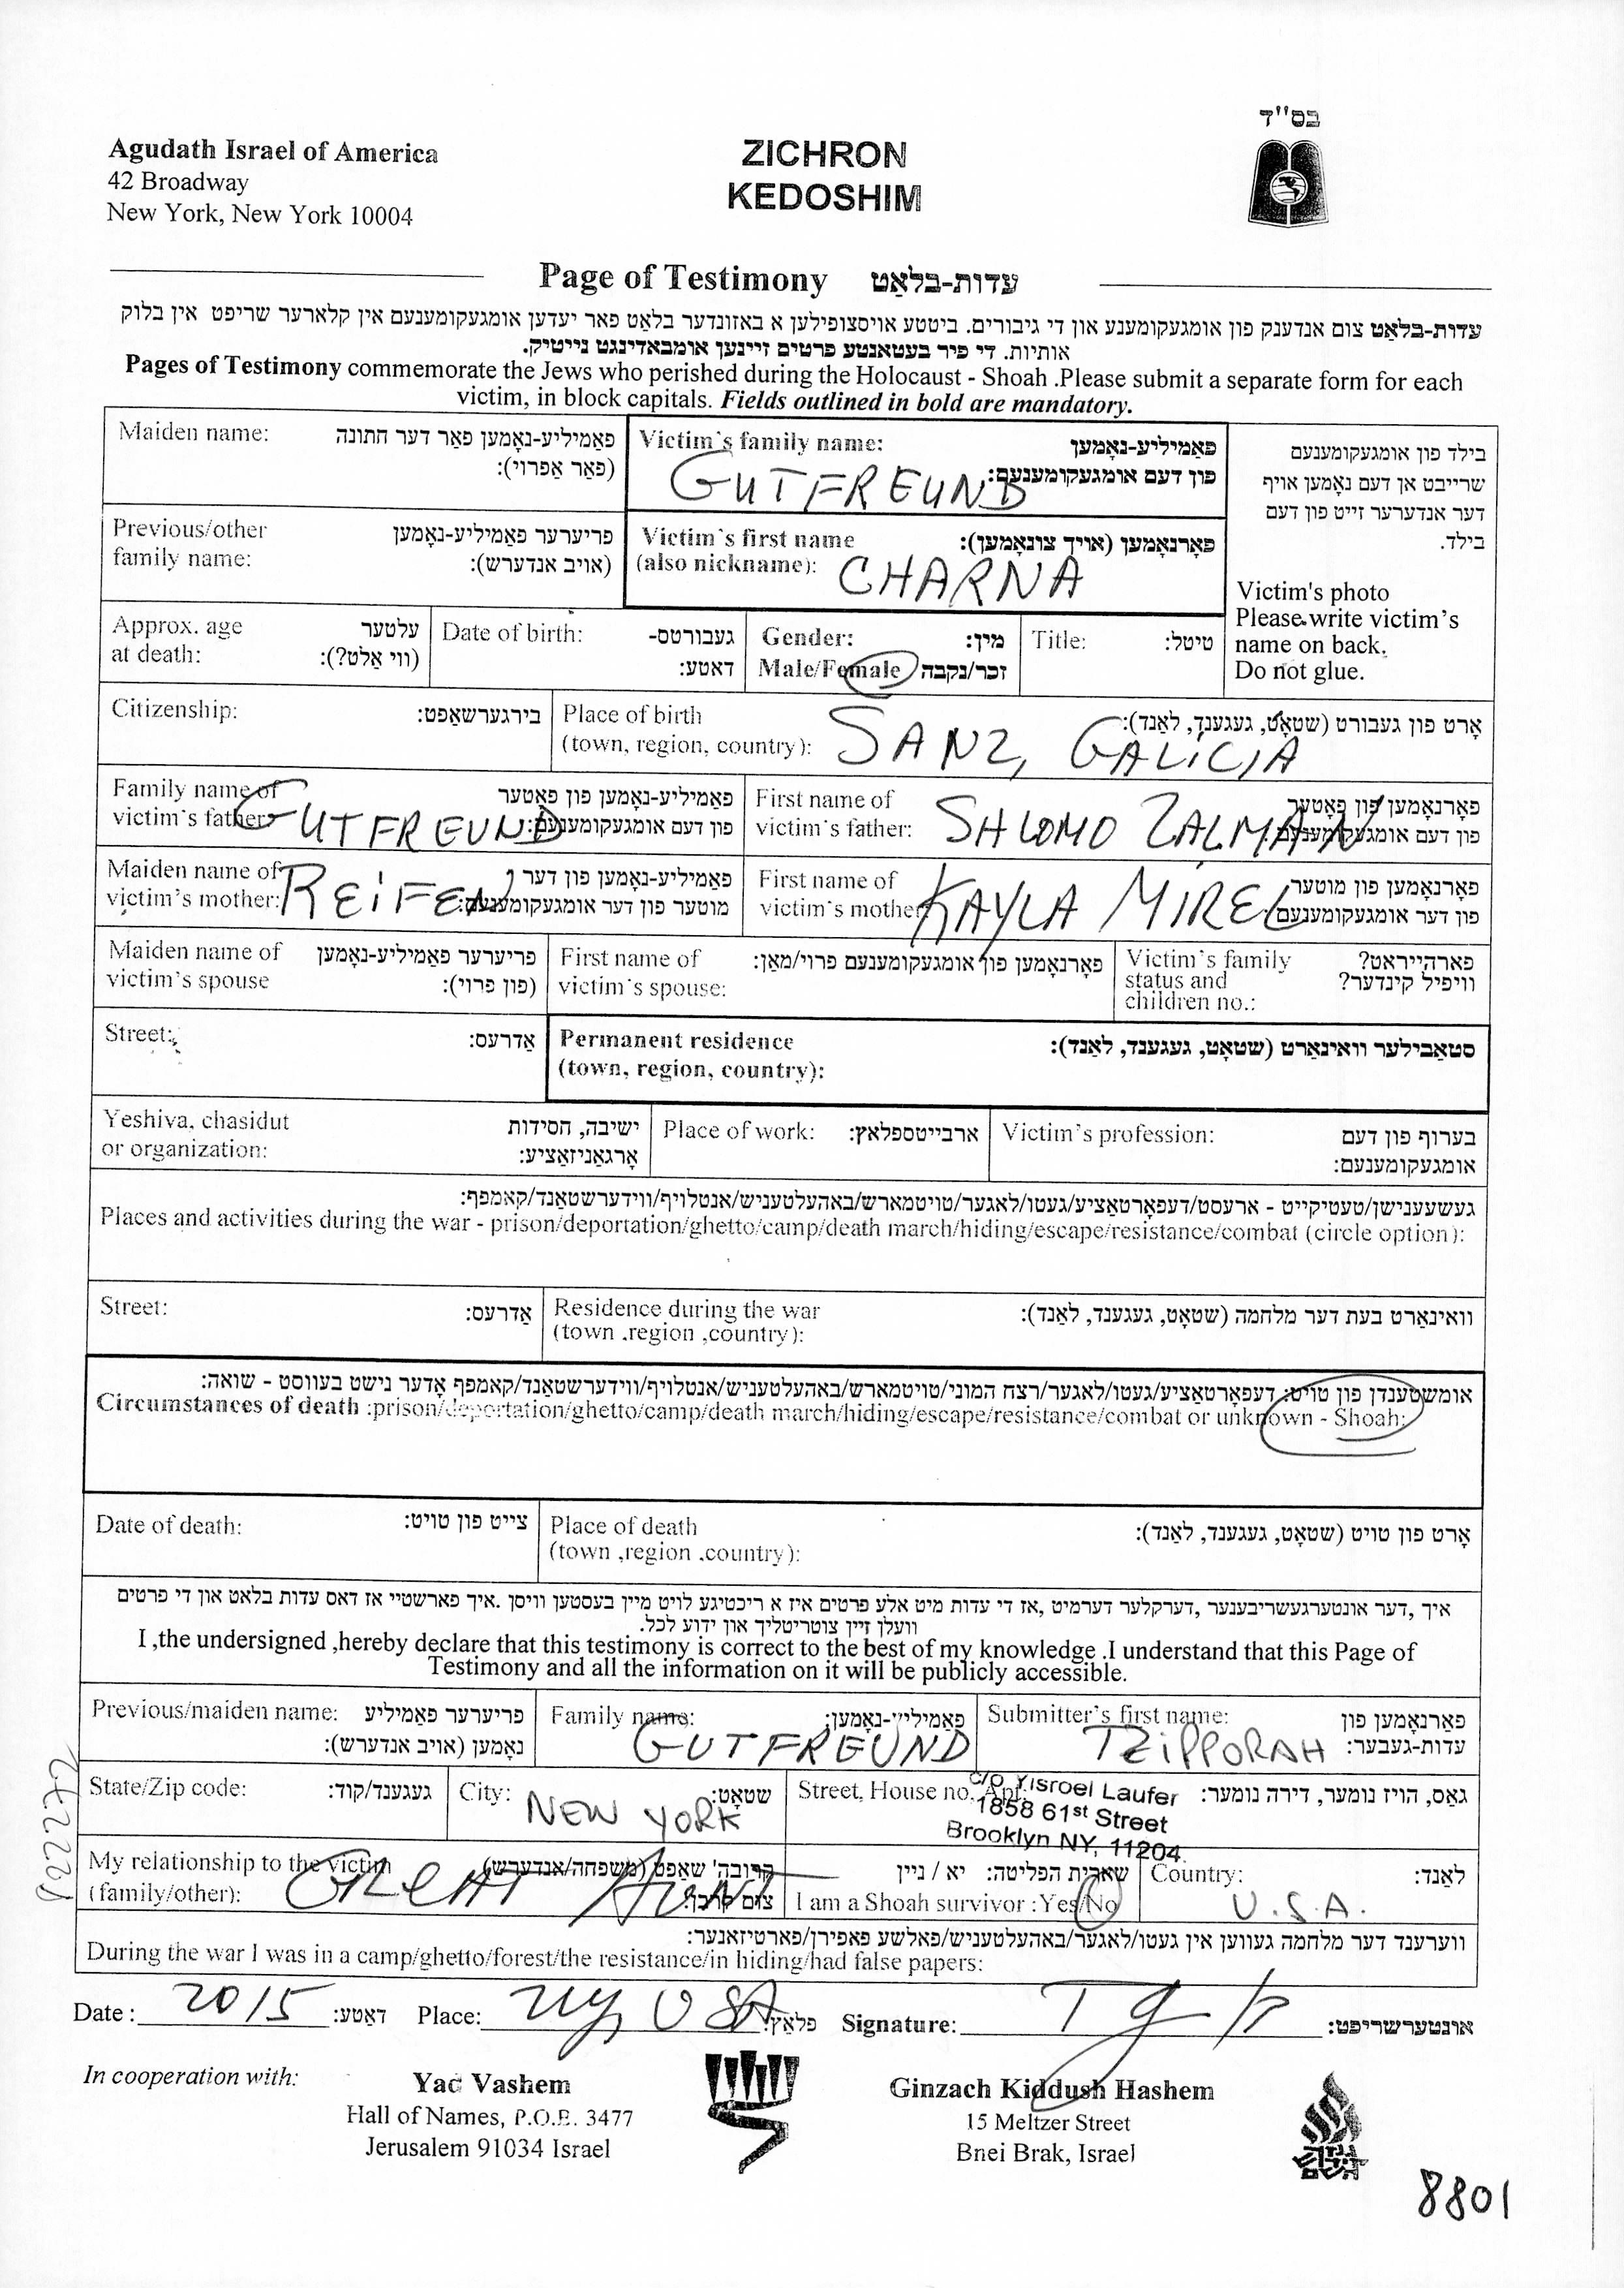 בס"ד
Agudath Israel of America
42 Broadway
New York, New York 10004
ZICHRON
KEDOSHIM
Page of Testimony עדות-בלאַט
עדות-בלאַט צום אנדענק פון אומגעקומענע און די גיבורים. ביטטע אויסצופילען א באזונדער בלאַט פאר יעדען אומגעקומענעם אין קלארער שריפט אין בלוק
אותיות. די פיר בעטאנטע פרטים זיינען אומבאדינגט נייטיק.
Pages of Testimony commemorate the Jews who perished during the Holocaust - Shoah .Please submit a separate form for each
victim, in block capitals. Fields outlined in bold are mandatory.
Maiden name: פאַמיליע-נאָמען פאַר דער חתונה
(פאַר אַפרוי):
Victim's family name: פאַמיליע-נאָמען
פון דעם אומגעקומענעם:
GUTFREUND
בילד פון אומגעקומענעם
שרייבט אן דעם נאָמען אויף
דער אנדערער זייט פון דעם
בילד.
Previous/other פריערער פאַמיליע-נאָמען
family name: (אויב אנדערש):
Victim's first name פאָרנאָמען (אויך צונאָמען):
(also nickname): CHARNA
Victim's photo
Please write victim's
name on back.
Do not glue.
Approx. age עלטער
at death: (ווי אַלט?):
Date of birth: געבורטס-
דאַטע:
Gender: מין:
Male/Female זכר/נקבה
Title: טיטל:
Citizenship: בירגערשאַפט:
Place of birth אָרט פון געבורט (שטאָט, געגענד, לאַנד):
(town, region, country): SANZ, GALICIA
Family name of פאַמיליע-נאָמען פון פאָטער
victim's father: פון דעם אומגעקומענעם:
GUTFREUND
First name of פאָרנאָמען פון פאָטער
victim's father: פון דעם אומגעקומענעם:
SHLOMO ZALMAN
Maiden name of פאַמיליע-נאָמען פון דער
victim's mother: מוטער פון דער אומגעקומענעם:
REIFEN
First name of פאָרנאָמען פון מוטער
victim's mother: פון דער אומגעקומענעם
KAYLA MIREL
Maiden name of פריערער פאַמיליע-נאָמען
victim's spouse (פון פרוי):
First name of פאָרנאָמען פון אומגעקומענעם פרוי/מאַן:
victim's spouse:
Victim's family פארהייראט?
status and וויפיל קינדער?
children no.:
Street: אַדרעס:
Permanent residence סטאַבילער וואינאַרט (שטאָט, געגענד, לאַנד):
(town, region, country):
Yeshiva, chasidut ישיבה, חסידות
or organization: אָרגאַניזאַציע:
Place of work: ארבייטספלאַץ:
Victim's profession: בערוף פון דעם
אומגעקומענעם:
געשעענישן/טעטיקייט - ארעסט/דעפאָרטאַציע/געטו/לאגער/טויטמארש/באהעלטעניש/אנטלויף/ווידערשטאַנד/קאַמפף:
Places and activities during the war - prison/deportation/ghetto/camp/death march/hiding/escape/resistance/combat (circle option):
Street: אַדרעס:
Residence during the war וואינאַרט בעת דער מלחמה (שטאָט, געגענד, לאַנד):
(town .region ,country):
אומשטענדן פון טויט: דעפאָרטאַציע/געטו/לאגער/רצח המוני/טויטמארש/באהעלטעניש/אנטלויף/ווידערשטאַנד/קאַמפף אָדער נישט בעוווסט - שואה:
Circumstances of death :prison/deportation/ghetto/camp/death march/hiding/escape/resistance/combat or unknown - Shoah:
Date of death: צייט פון טויט:
Place of death אָרט פון טויט (שטאָט, געגענד, לאַנד):
(town ,region .country):
איך ,דער אונטערגעשריבענער ,דערקלער דערמיט ,אז די עדות מיט אלע פרטים איז א ריכטיגע לויט מיין בעסטען וויסן .איך פארשטיי אז דאס עדות בלאט און די פרטים
וועלן זיין צוטריטליך און ידוע לכל.
I ,the undersigned ,hereby declare that this testimony is correct to the best of my knowledge .I understand that this Page of
Testimony and all the information on it will be publicly accessible.
Previous/maiden name: פריערער פאַמיליע
נאָמען (אויב אנדערש):
Family name: פאַמיליי-נאָמען:
GUTFREUND
Submitter's first name: פאַרנאָמען פון
עדות-געבער:
TZIPPORAH
State/Zip code: געגענד/קוד:
City: שטאָט:
NEW YORK
Street, House no. Apt. גאַס, הויז נומער, דירה נומער:
c/o Yisroel Laufer
1858 61st Street
Brooklyn NY, 11204
My relationship to the victim קרובה' שאַפט (משפחה/אנדערש)
(family/other): צום קרבן:
GREAT AUNT
שארית הפליטה: יא / ניין
I am a Shoah survivor :Yes/No
Country: לאַנד:
U.S.A.
ווערענד דער מלחמה געווען אין געטו/לאגער/באהעלטעניש/פאלשע פאפירן/פארטיזאנער:
During the war I was in a camp/ghetto/forest/the resistance/in hiding/had false papers:
Date : 2015 דאַטע: Place: NY, USA פלאַץ: Signature: אונטערשריפט:
In cooperation with:
Yad Vashem
Hall of Names, P.O.B. 3477
Jerusalem 91034 Israel
Ginzach Kiddush Hashem
15 Meltzer Street
Bnei Brak, Israel
8801